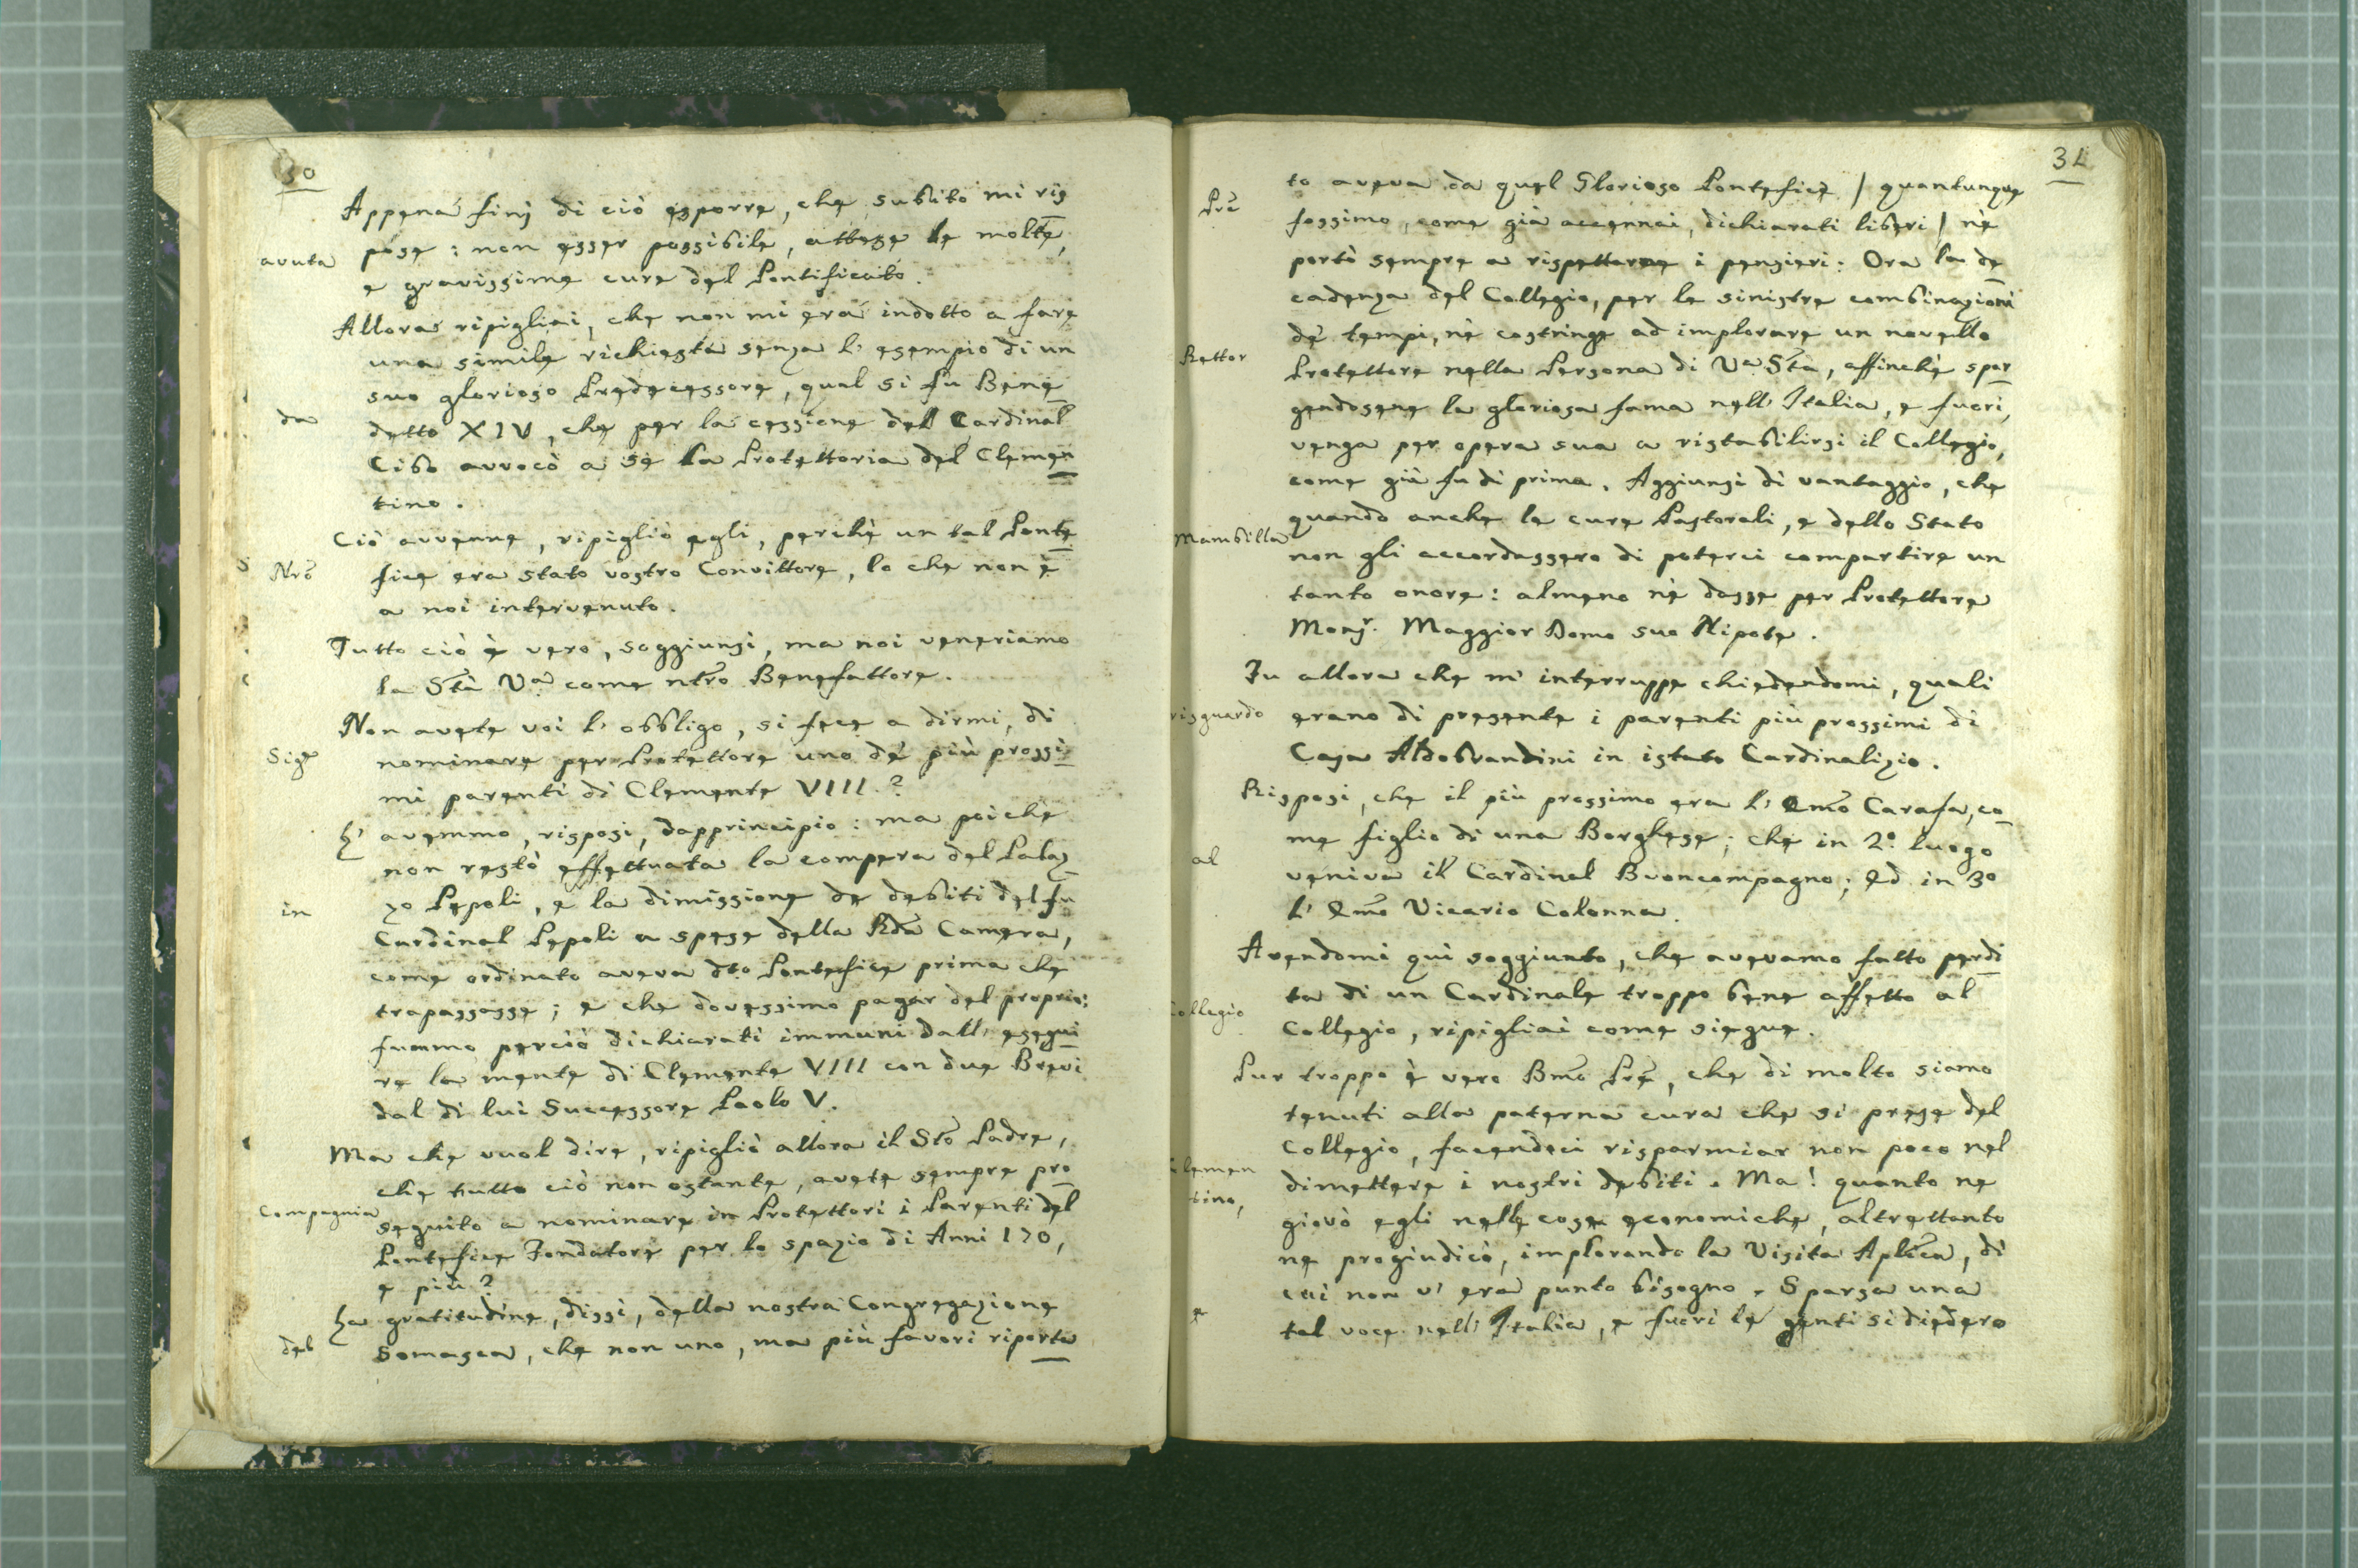 30
Appena finj di ciò esporre, che subito mi ris
pose: non esser possibile, attese le molte,
avuta
e gravissime cure del Pontificato.
Allora ripigliai, che non mi era indotto a fare
una simile richiesta senza l' esempio di un
suo glorioso Predecessore, qual si fu Bene
da
detto XIV, che per la cessione del Cardinal
Cibo avvocò a se la Protettoria del Clemen
tino.
Ciò avvenne, ripigliò egli, perchè un tal Ponte
Nrõ
fice era stato vostro Convittore, lo che non è
a noi intervenuto.
Tutto ciò è vero, soggiunsi, ma noi veneriamo
la Stà Va come ntro Benefattore.
Non avete voi l' obbligo, si fece a dirmi, di
Sige
nominare per Protettore uno de' più prossi
mi parenti di Clemente VIII.?
L' avemmo, risposi, dapprincipio: ma poichè
non restò effettuata la compera del Palaz
in
zo Pepoli, e la dimissione de debiti del fu
Cardinal Pepoli a spese della Rda Camera,
come ordinato aveva dto Pontefice prima che
trapassasse; e che dovessimo pagar del proprio:
fummo perciò dichiarati immuni dall' esegui
re la mente di Clemente VIII con due Brevi
dal di lui Successore Paolo V.
Ma che vuol dire, ripigliò allora il Sto Padre,
che tutto ciò non ostante, avete sempre pro
Compagnia
seguito a nominare in Protettori i Parenti del
Pontefice Fondatore per lo spazio di Anni 170,
e più?
La gratitudine, dissi, della nostra Congregazione
del
Somasca, che non uno, ma più favori riporta
31
to aveva da quel Glorioso Pontefice / quantunque
Prẽ
fossimo, come già accennai, dichiarati liberi / nè
portò sempre a rispettarne i pensieri: Ora la de
cadenza del Collegio, per le sinistre combinazioni
de' tempi, nè costringe ad implorare un novello
Rettor
Protettore nella Persona di Va Sta, affinchè spar
gendosene la gloriosa fama nell' Italia, e fuori,
venga per opera sua a ristabilirsi il Collegio,
come già fu di prima. Aggiunsi di vantaggio, che
quando anche le cure Pastorali, e dello Stato
Mambilla
non gli accordassero di poterci compartire un
tanto onore: almeno nè dasse per Protettore
Monsr. Maggior Domo suo Nipote.
Fu allora che m' interruppe chiedendomi, quali
risguardo
erano di presente i parenti più prossimi di
Casa Aldobrandini in istato Cardinalizio.
Risposi, che il più prossimo era l' Emo Carafa, co
me figlio di una Borghese; che in 2° luogo
al
veniva il Cardinal Buoncompagno; Ed in 3°
l' Emo Vicario Colonna.
Avendomi qui soggiunto, che avevamo fatto perdi
ta di un Cardinale troppo bene affetto al
Collegio
Collegio, ripigliai come siegue.
Pur troppo è vero Bmo Prẽ, che di molto siamo
tenuti alla paterna cura che si prese del
Collegio, facendoci risparmiar non poco nel
Clemen
dimettere i nostri debiti. Ma! quanto ne
tino,
giovò egli nelle cose economiche, altrettanto
ne progiudicò, implorando la Visita Aplica, di
cui non v' era punto bisogno. Sparsa una
e
tal voce nell' Italia, e fuori le genti si diedero